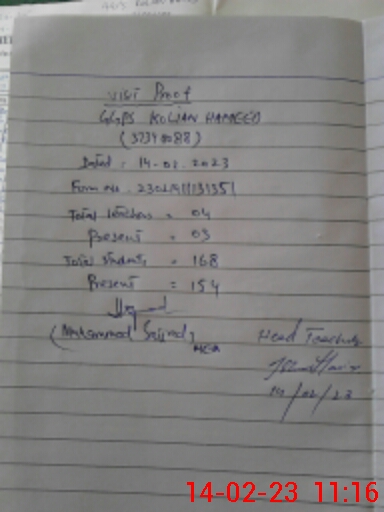 Visit Proof
GGPS KOLIAN HAMEED
(37340088)
Dated: 14-02-2023
Total Teachers = 04
Present = 03
Total Students = 168
Present = 154
(Muhammad Sajjad)
MEA
Head Teacher
14/02/23
14-02-23 11:16